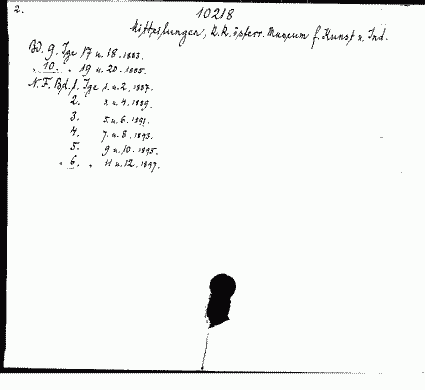 2.
10218
Mitteilungen, k.k. österr. Museum f. Kunst u. Ind.
Bd. 9. Jge 17 u. 18. 1883.
" 10. " 19 u. 20. 1885.
N.F. Bd. 1. Jge 1. u. 2. 1887.
2. 3. u. 4. 1889.
3. 5. u. 6. 1891.
4. 7. u. 8. 1893.
5. 9 u. 10. 1895.
" 6. " 11 u. 12. 1897.